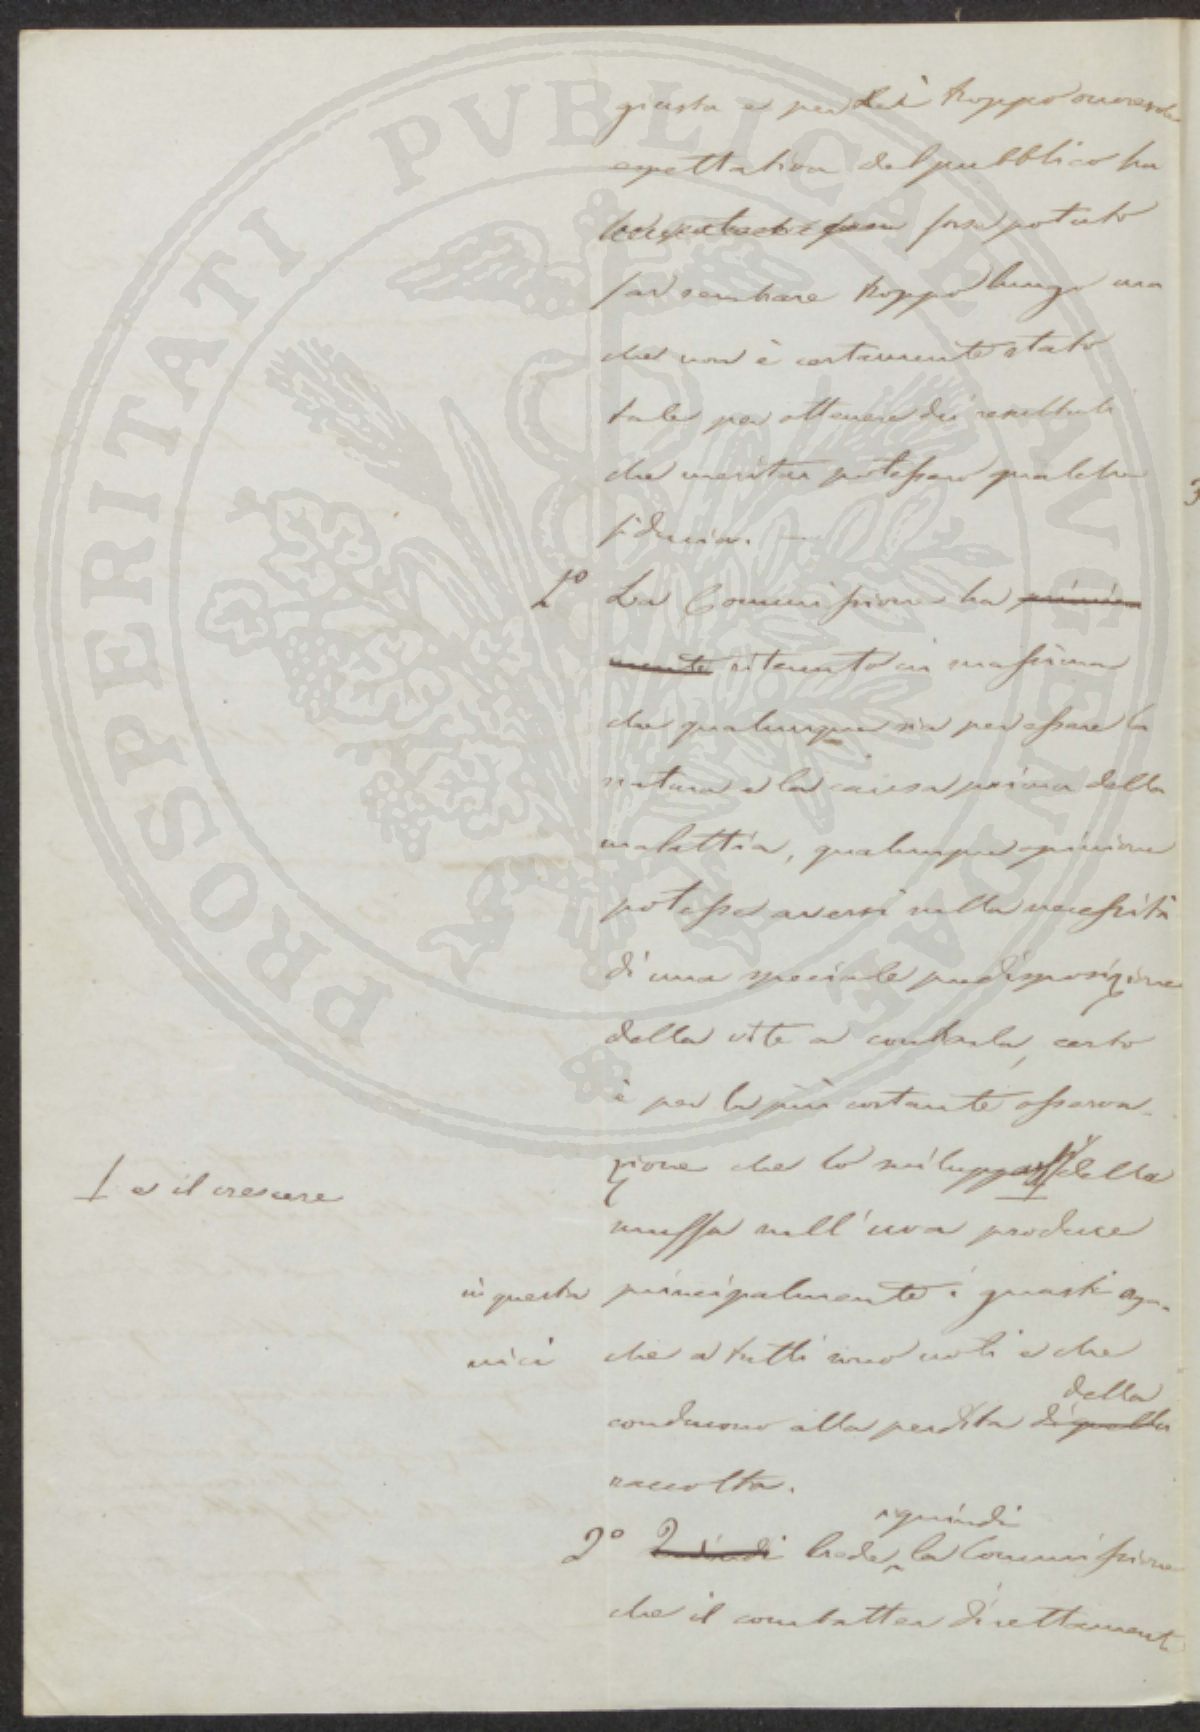 PROSPERITATI PVBLICAE AVGENDAE
giusta e per Lei troppo onorevole
espettativa del pubblico ha
forse potuto
far sembrare troppo lungo ma
che non è certamente stato
tale per ottenere dei resultati
che meritar potessero qualche
fiducia. —
1º La Commissione ha primiera
mente ritenuto in massima
che qualunque sia per essere la
natura e la causa prima della
malattia, qualunque opinione
potesse aversi nella necessità
di una speciale predisposizione
della vite a contrarla, certo
è per la più costante osserva-
zione che lo sviluppo della
e il crescere
muffa nell'uva produce
in questa principalmente i guasti orga-
nici che a tutti sono noti e che
della
conducono alla perdita di quella
raccolta.
quindi
2º Quindi Crede la Commissione
che il combatter direttament